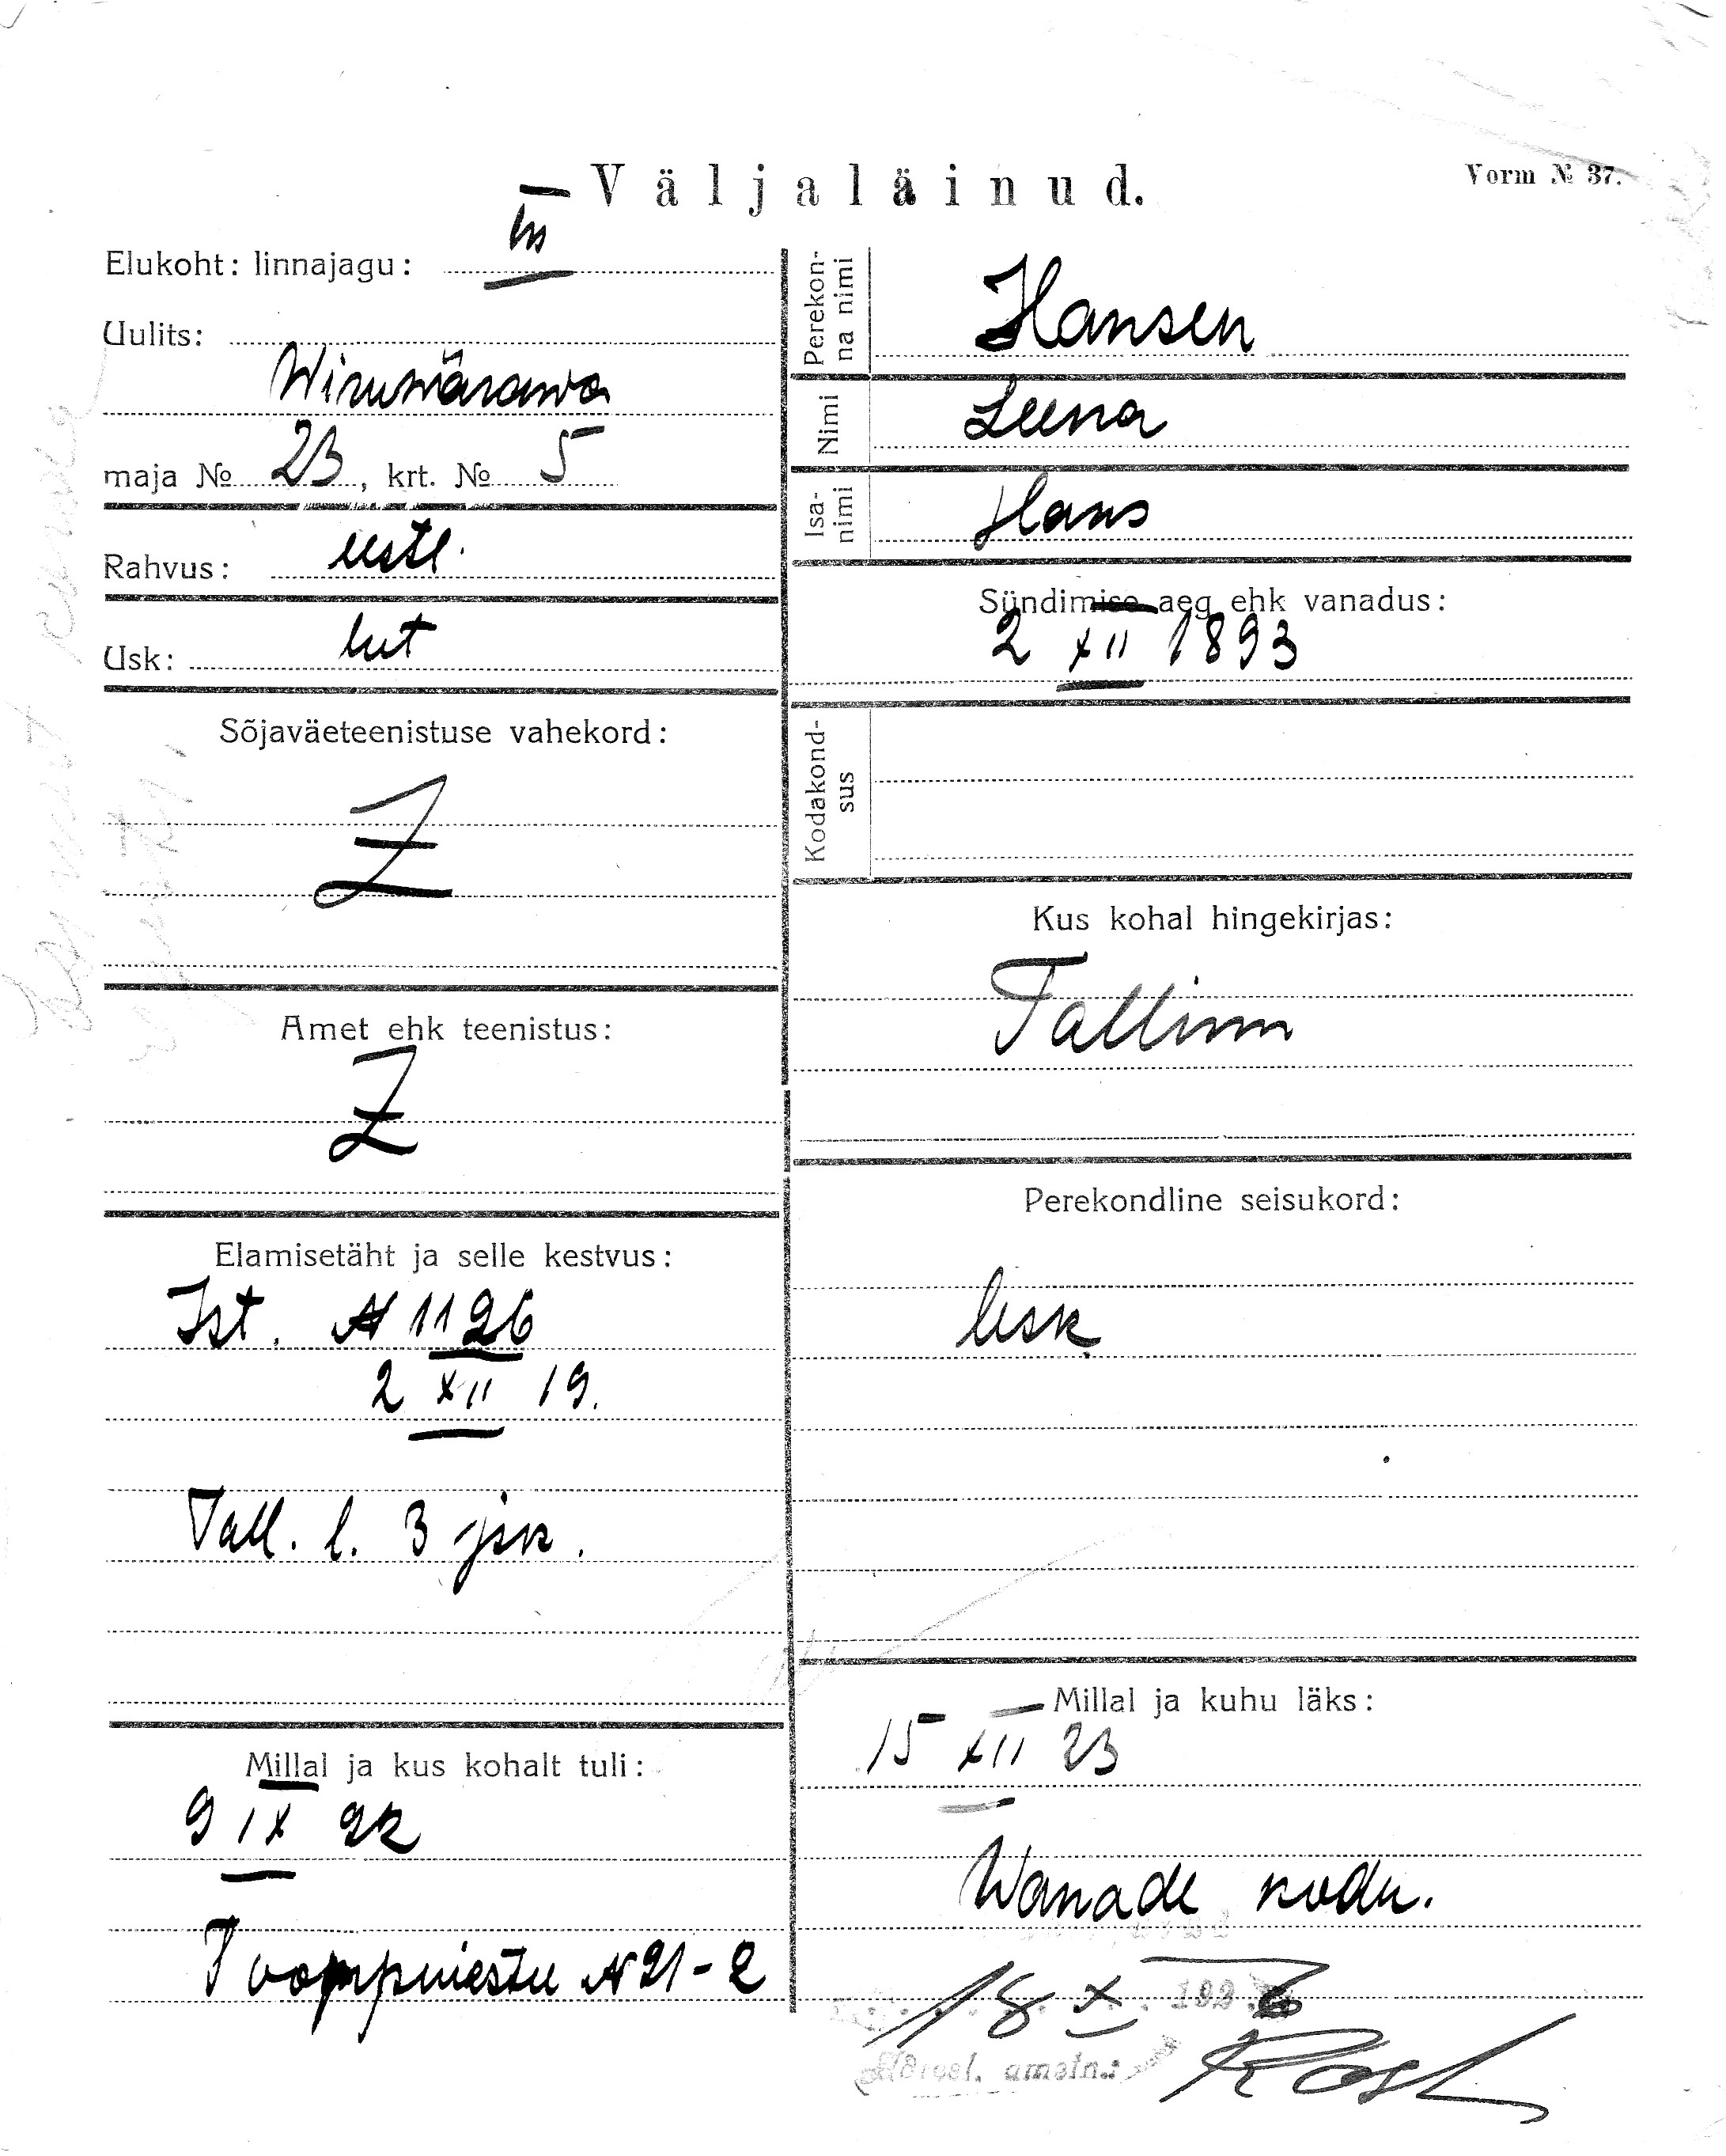 Väljaläinud.
Vorm № 37.
Elukoht: linnajagu: III
Uulits:
Wiruwärawa
maja № 23, krt. № 5
Rahvus: eestl.
Usk: lut
Sõjaväeteenistuse vahekord:
Z
Amet ehk teenistus:
Z
Elamisetäht ja selle kestvus:
Ist. № 1126
2 XII 19.
Tall. l. 3 jsk.
Millal ja kus kohalt tuli:
9 IX 22
Toompuiestee № 21-2
Perekonna nimi
Hansen
Nimi
Leena
Isanimi
Hans
Sündimise aeg ehk vanadus:
2 XII 1893
Kodakondsus
Kus kohal hingekirjas:
Tallinn
Perekondline seisukord:
lesk
Millal ja kuhu läks:
15 XII 23
Wanade kodu.
18 X 192
ametn.: